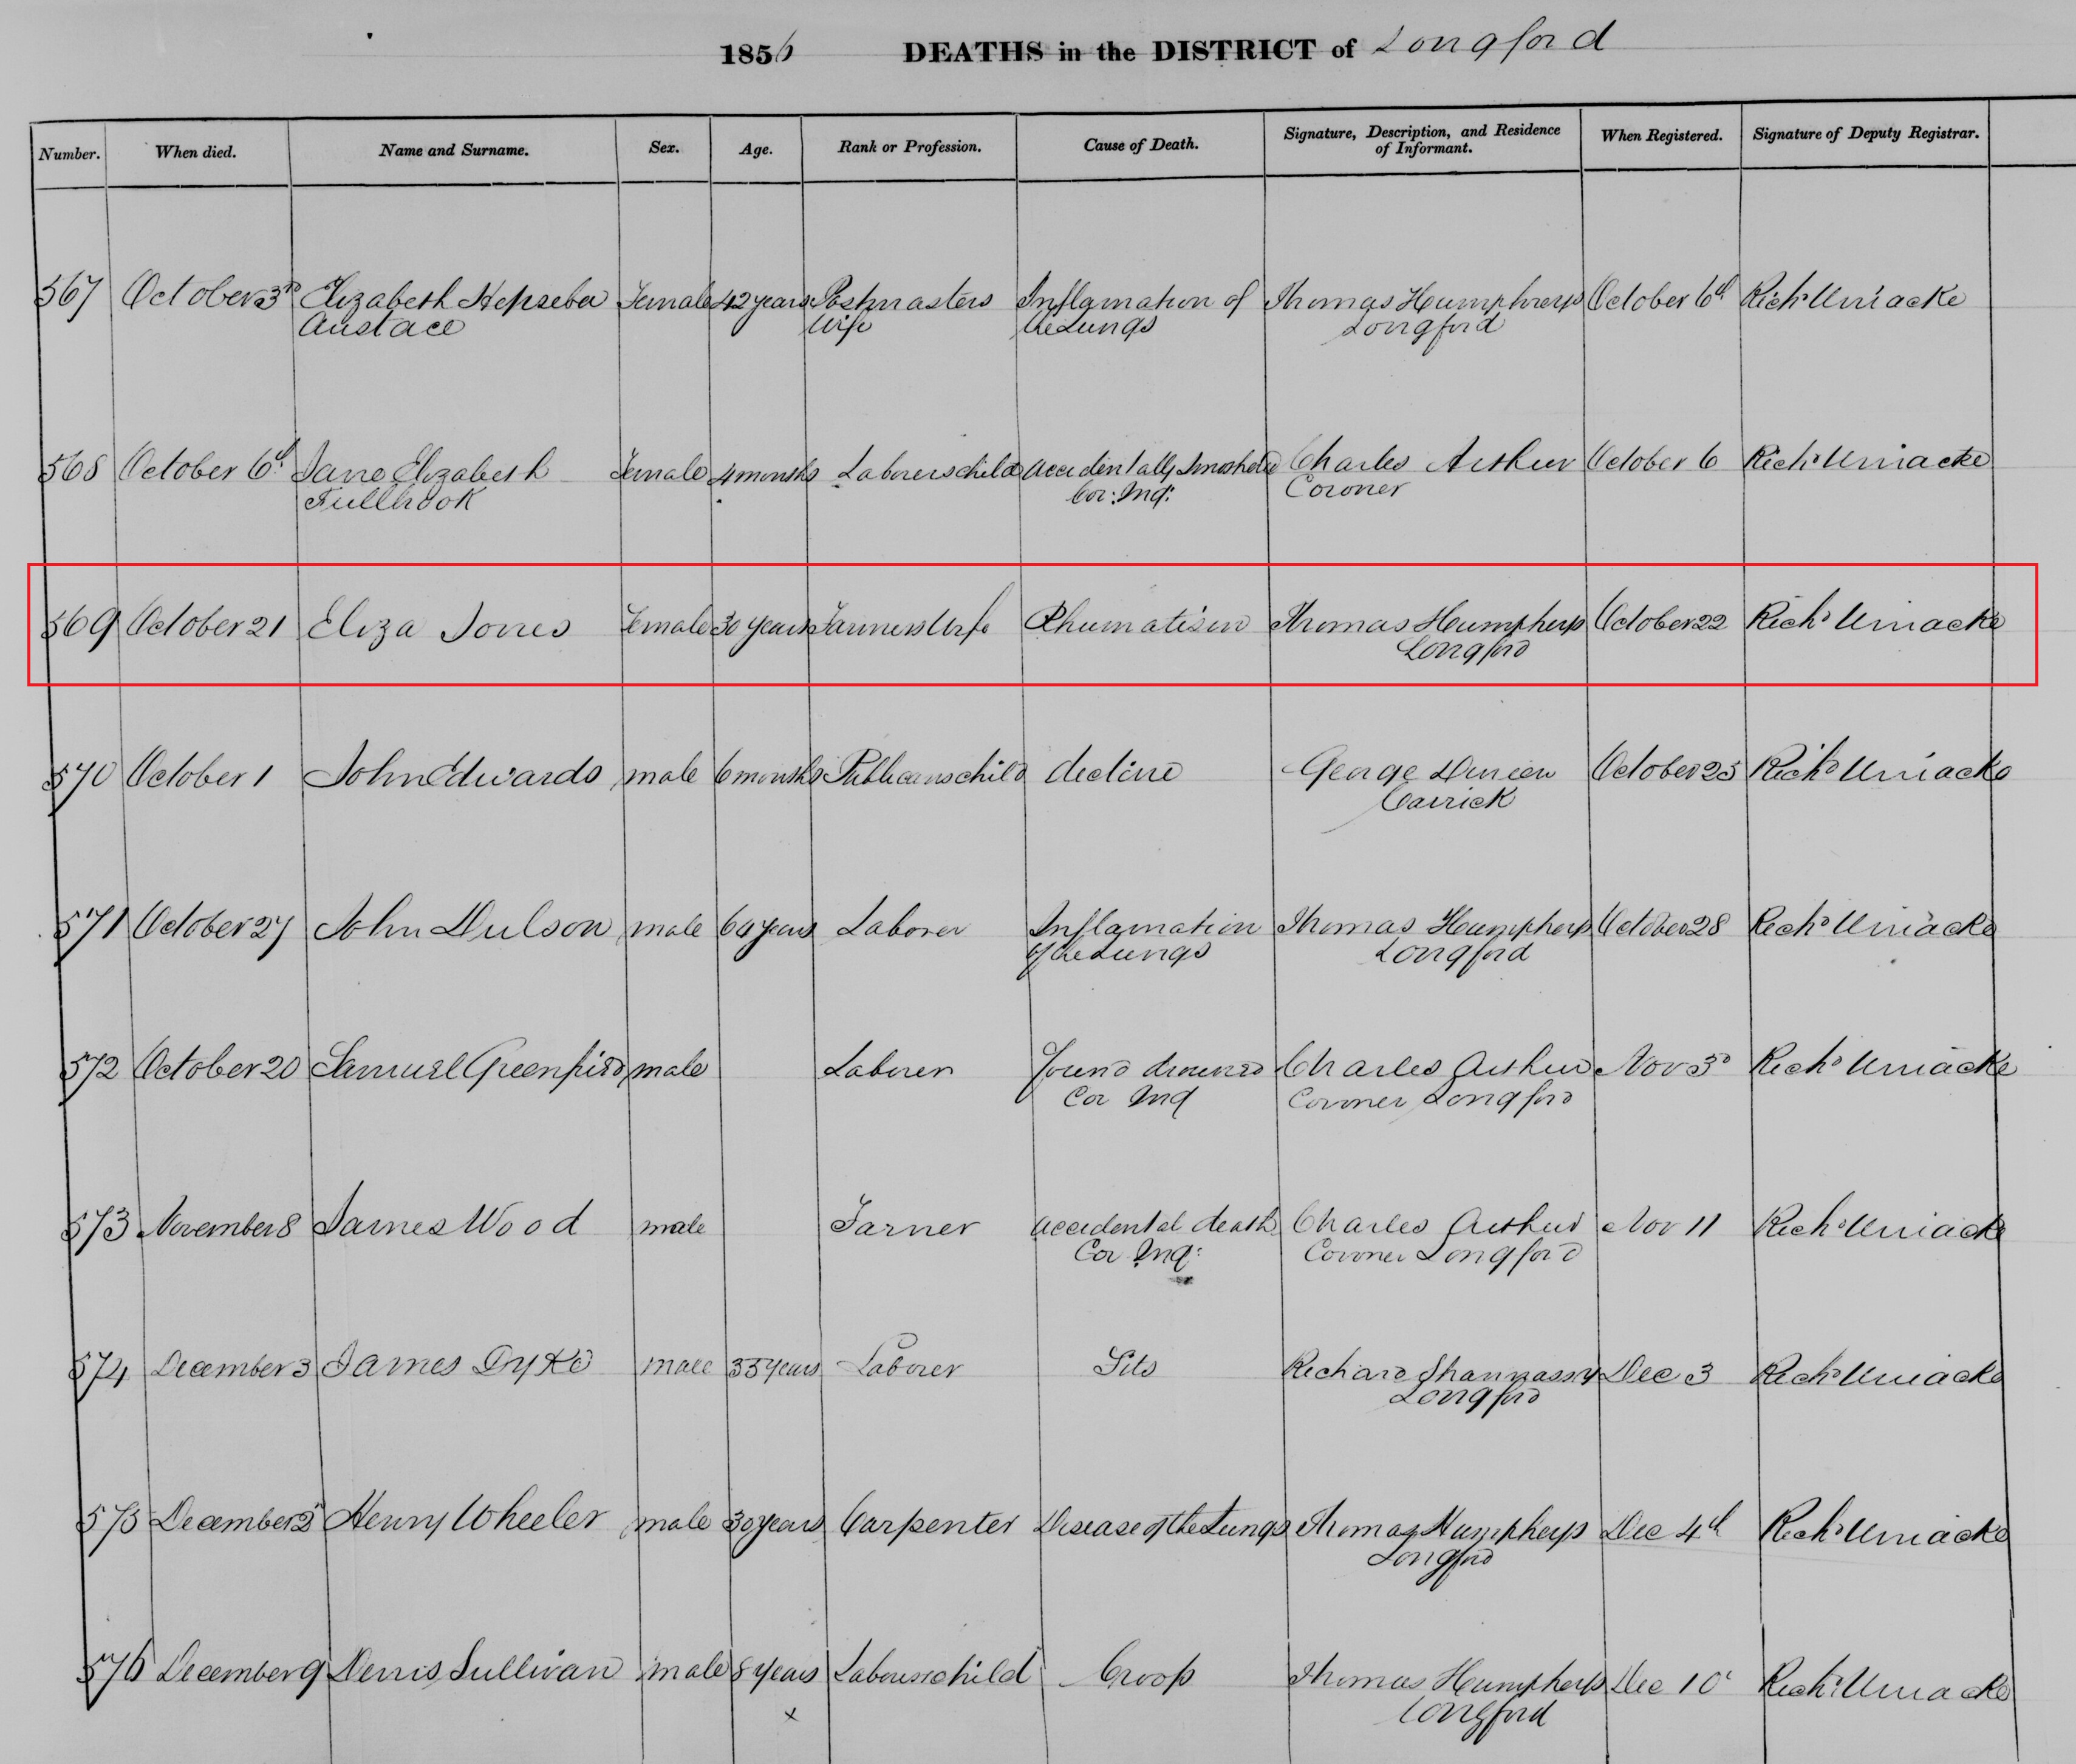 1856 DEATHS in the DISTRICT of Longford
Number. When died. Name and Surname. Sex. Age. Rank or Profession. Cause of Death. Signature, Description, and Residence of Informant. When Registered. Signature of Deputy Registrar.
567 October 3rd Elizabeth Hepzeba Female 42 years Postmasters Inflamation of Thomas Humphreys October 6th Richd Uniacke
Austace Wife the Lungs Longford
568 October 6th Jane Elizabeth Female 4 months Laborers child accidentally Smothered Charles Arthur October 6 Richd Uniacke
Fullbrook Cor: Inq: Coroner
569 October 21 Eliza Jones Female 30 years Farmers Wife Rhumatism Thomas Humphreys October 22 Richd Uniacke
Longford
570 October 1 John Edwards male 6 months Publicans child decline George October 25 Richd Uniacke
Carrick
571 October 27 John Dulson male 60 years Laborer Inflamation Thomas Humphreys October 28 Richd Uniacke
of the Lungs Longford
572 October 20 Samuel Greenfield male Laborer found drowned Charles Arthur Nov 3d Richd Uniacke
Cor Inq Coroner Longford
573 November 8 James Wood male Farmer accidental death Charles Arthur Nov 11 Richd Uniacke
Cor Inq: Coroner Longford
574 December 3 James Dyke male 35 years Laborer Fits Richard Shannassy Dec 3 Richd Uniacke
Longford
575 December 2d Henry Wheeler male 30 years Carpenter Disease of the Lungs Thomas Humpherys Dec 4th Richd Uniacke
Longford
576 December 9 Denis Sullivan male 8 years Labourers child Croop Thomas Humpherys Dec 10th Richd Uniacke
x Longford